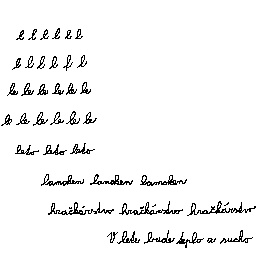 l l l l l l
l l l l f l
le le le le le le
le le le le le le
leto leto leto
lanolen lanolen lanolen
hračkárstvo hračkárstvo hračkárstvo
V lete bude teplo a sucho